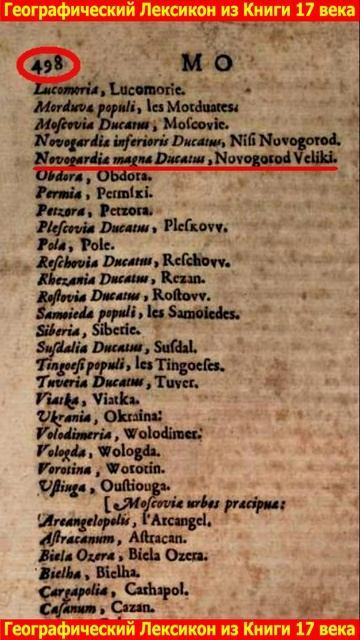 Географический Лексикон из Книги 17 века
498 M O
Lucomoria, Lucomorie.
Morduva populi, les Morduates.
Moſcovia Ducatus, Moſcovie.
Novogardia inferioris Ducatus, Niſi Novogorod.
Novogardia magna Ducatus, Novogorod Veliki.
Obdora, Obdora.
Permia, Permſki.
Petzora, Petzora.
Pleſcovia Ducatus, Pleſkovv.
Pola, Pole.
Reſchovia Ducatus, Reſchovv.
Rhezania Ducatus, Rezan.
Roſtovia Ducatus, Roſtovv.
Samoieda populi, les Samoiedes.
Siberia, Siberie.
Suſdalia Ducatus, Suſdal.
Tingoeſi populi, les Tingoeſes.
Tuveria Ducatus, Tuver.
Viatka, Viatka.
Ukrania, Okraina:
Volodimeria, Wolodimer.
Vologda, Wologda.
Vorotina, Worotin.
Uſtiuga, Ouſtiouga.
[Moſcoviæ urbes præcipuæ:
Arcangelopolis, l'Arcangel.
Aſtracanum, Aſtracan.
Biela Ozera, Biela Ozera.
Bielha, Bielha.
Cargapolia, Carhapol.
Caſanum, Cazan.
Географический Лексикон из Книги 17 века